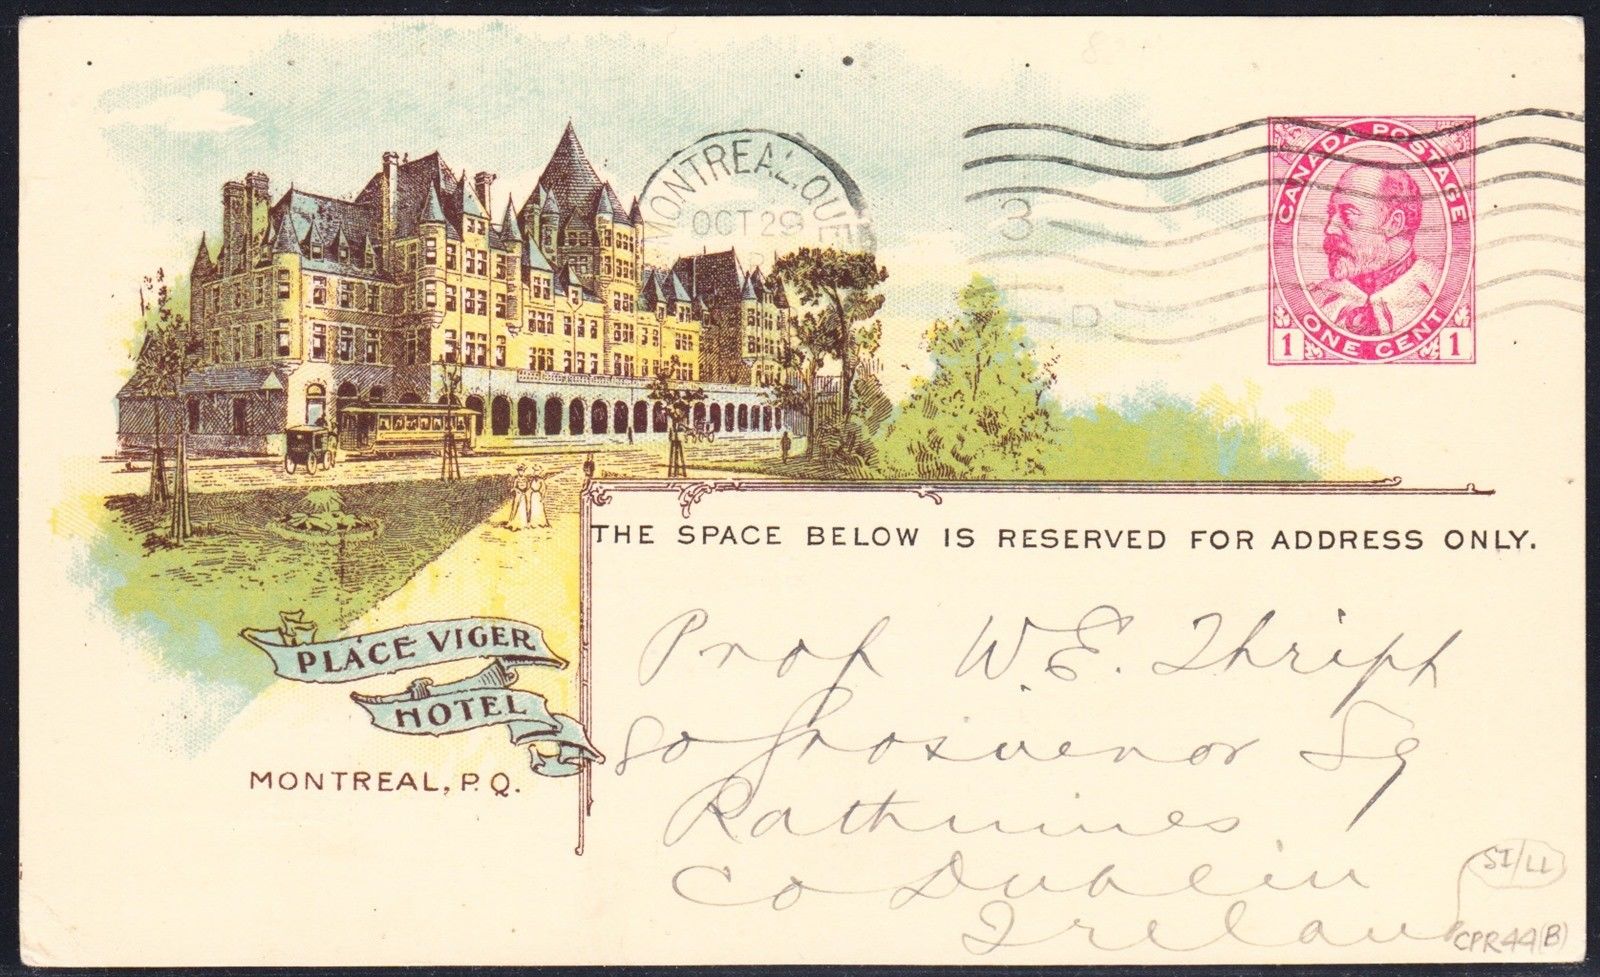 MONTREAL. QUE
OCT 29
3
D
CANADA POSTAGE
ONE CENT
1 1
THE SPACE BELOW IS RESERVED FOR ADDRESS ONLY.
PLACE VIGER
HOTEL
MONTREAL, P. Q.
Prof W. E. Thrift
80 Grosvenor Sq
Rathmines
Co Dublin
Ireland
SI/LL
CPR44(B)